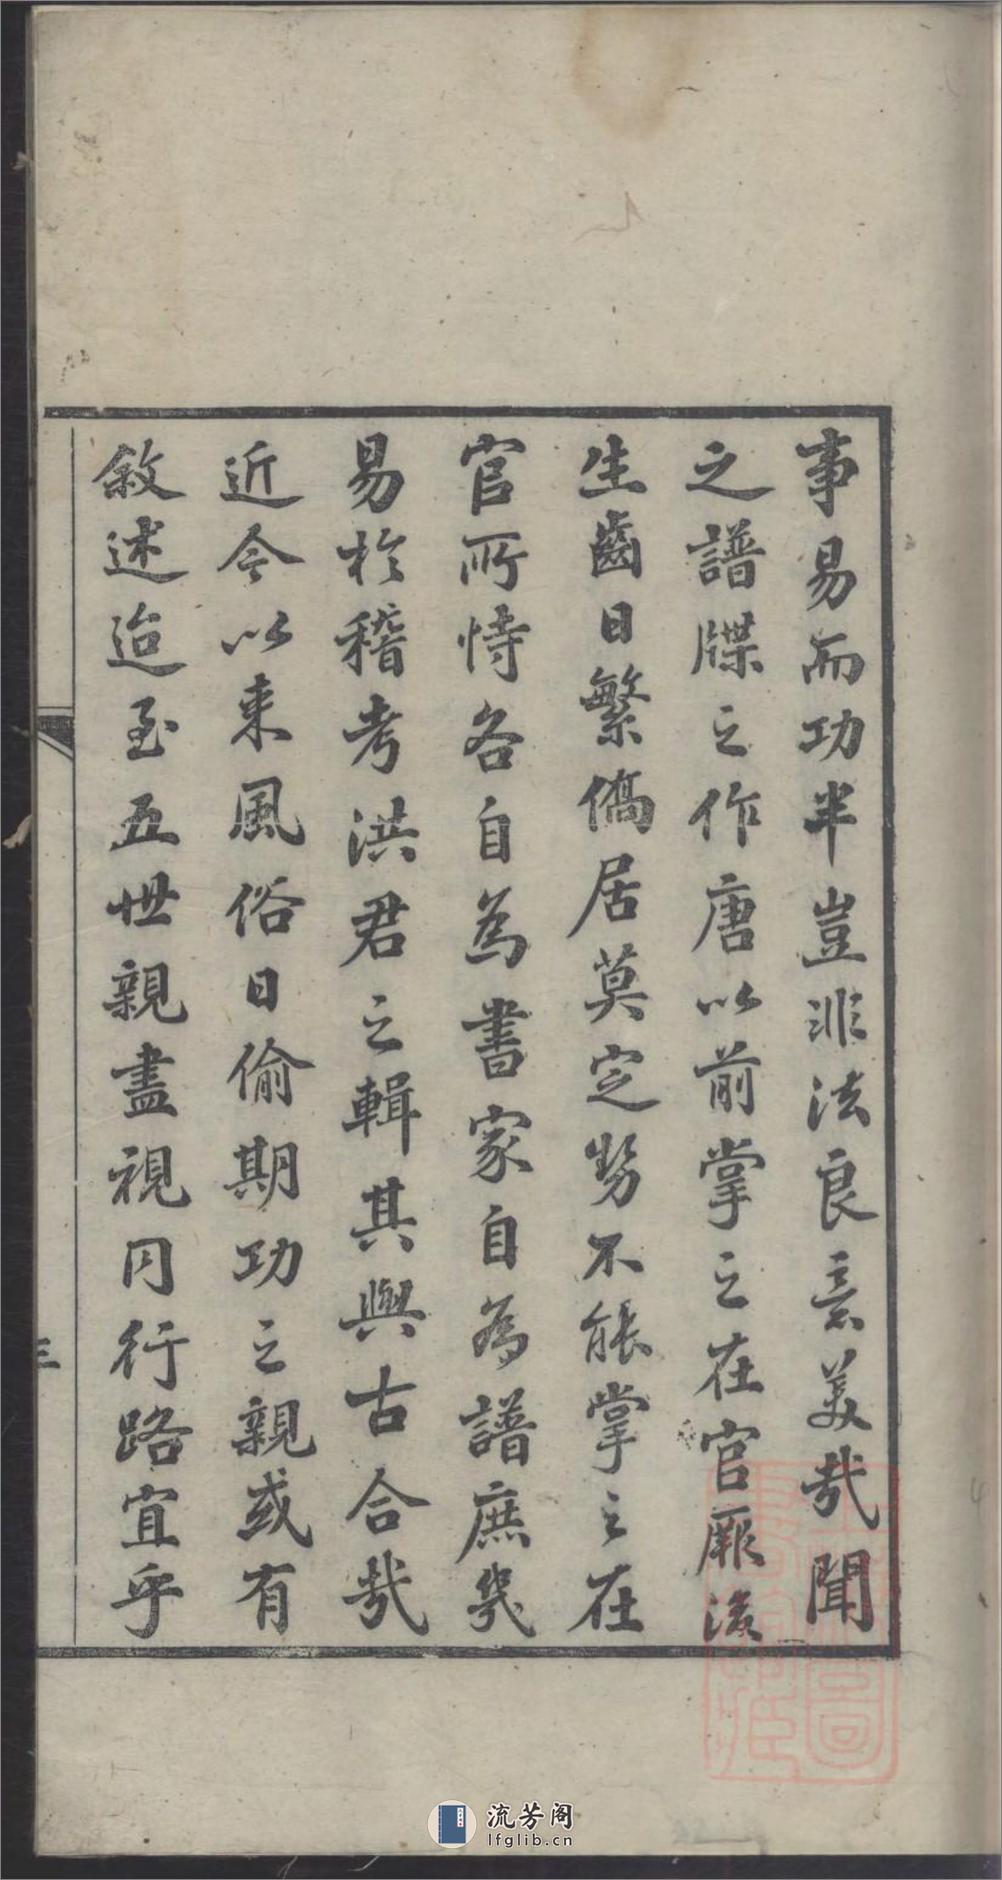 事易而功半豈非法良意美哉聞
之譜牒之作唐以前掌之在官厥後
生齒日繁僑居莫定勢不能掌之在
官所恃各自為書家自為譜庶幾
易於稽考洪君之輯其與古合哉
近今以來風俗日偷期功之親或有
敘述迨至五世親盡視同行路宜乎
三
流芳阁
lfglib.cn